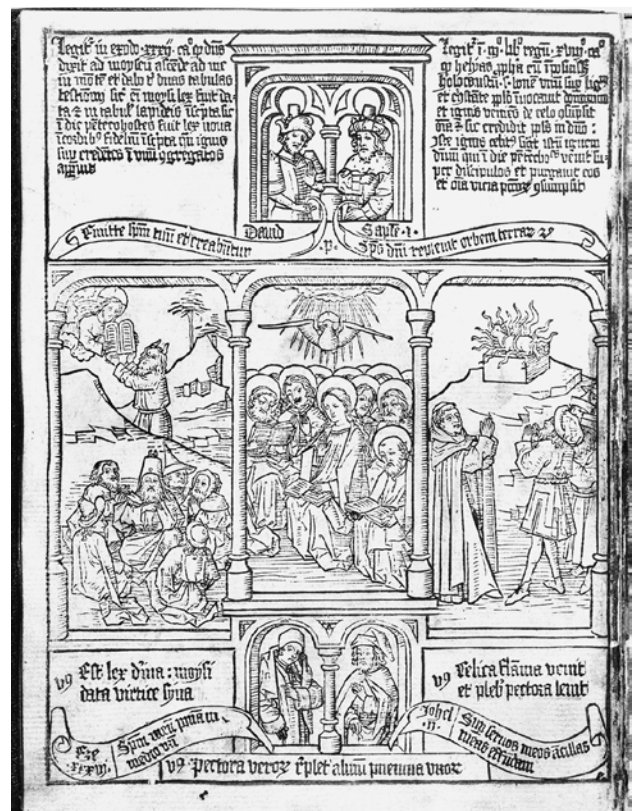 Legit᷑ in exodo ·xxiiij· ca° qɔ dn̄s
dixit ad moysen ascēde ad me
in mōtē et dabo t᷑ duas tabulas
testimonij sic eī moysi lex fuit da-
ta ⁊ in tabul᷑ lapideis īscpta sic
ī die pētecostes fuit lex noua
ī cordibꝰ fideliū īscpta qꝛ ignis
suꝑ credētes ī vnū ↄgregatos
apparuit
Legit᷑ ī ·iij· lib° regū ·xviij· ca°
qɔ helyas ꝓpha cū
holocaustū ·s· bouē vnū suꝑ lig
et ppl̄o īuocauit
et ignis veniēs de celo ↄsūpsit
oīa ⁊ sic credidit ppl̄s in dnm̄ :
Iste ignis sigt istū ignem
diuinū qui ī die pētecosᵗ venit su-
per discipulos et purgauit eos
et oīa vicia pctōꝝ ↄsumpsit
Emitte spm̄ tuū et creabūtur
Dauid
Sapīe ·i·
·p·
Sps dn̄i repleuit orbem terraꝝ ⁊c
vꝰ Est lex diuīa : moysi
data vertice syna
vꝰ Celica flāma venit
et pleb᷑ pectora lenit
Eze
·xxxvj·
Spm̄ meū ponā in
medio vr̄i
Johel
·ii·
Suꝑ seruos meos ⁊ ācillas
meas effundam
vꝰ Pectora veroꝝ īplet almū pneuma viroꝝ